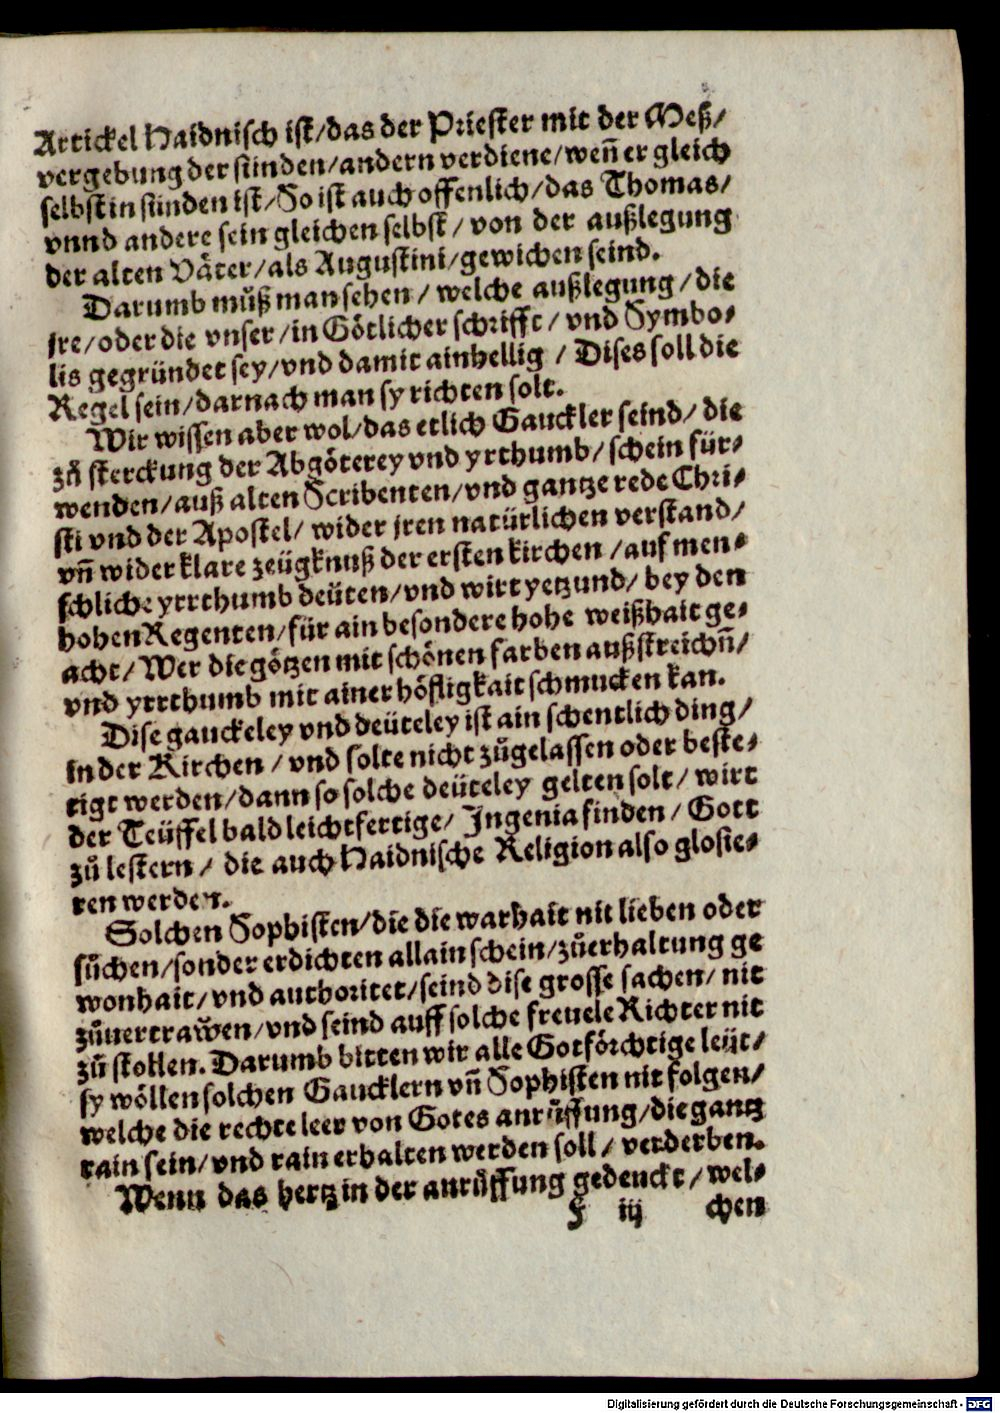 Artickel Haidnisch ist/das der Priester mit der Meß/
vergebung der sünden/andern verdiene/weñ er gleich
selbst in sünden ist/So ist auch offenlich/das Thomas/
vnnd andere sein gleichen selbst/von der außlegung
der alten Väter/als Augustini/gewichen seind.
Darumb můß man sehen/welche außlegung/die
jre/oder die vnser/in Götlicher schrifft/vnd Symbo⸗
lis gegründet sey/vnd damit ainhellig/Dises soll die
Regel sein/darnach man sy richten solt.
Wir wissen aber wol/das etlich Gauckler seind/die
zů sterckung der Abgöterey vnd yrthumb/schein für⸗
wenden/auß alten Scribenten/vnd gantze rede Chri⸗
sti vnd der Apostel/wider jren natürlichen verstand/
vñ wider klare zeügknuß der ersten kirchen/auf men⸗
schliche yrrthumb deüten/vnd wirt yetzund/bey den
hohen Regenten/für ain besondere hohe weißhait ge⸗
acht/Wer die götzen mit schönen farben außstreichñ/
vnd yrrthumb mit ainer höfligkait schmucken kan.
Dise gauckeley vnd deüteley ist ain schentlich ding/
in der Kirchen/vnd solte nicht zůgelassen oder beste⸗
tigt werden/dann so solche deüteley gelten solt/wirt
der Teüffel bald leichtfertige/Ingenia finden/Gott
zů lestern/die auch Haidnische Religion also glosie⸗
ren werden.
Solchen Sophisten/die die warhait nit lieben oder
sůchen/sonder erdichten allain schein/zůerhaltung ge
wonhait/vnd authoritet/seind dise grosse sachen/nit
zůuertrawen/vnd seind auff solche freuele Richter nit
zů stollen. Darumb bitten wir alle Gotförchtige leüt/
sy wöllen solchen Gaucklern vñ Sophisten nit folgen/
welche die rechte leer von Gotes anrůffung/die gantz
rain sein/vnd rain erhalten werden soll/verderben.
Wenn das hertz in der anrůffung gedenckt/wel⸗
F iij chen
Digitalisierung gefördert durch die Deutsche Forschungsgemeinschaft - DFG